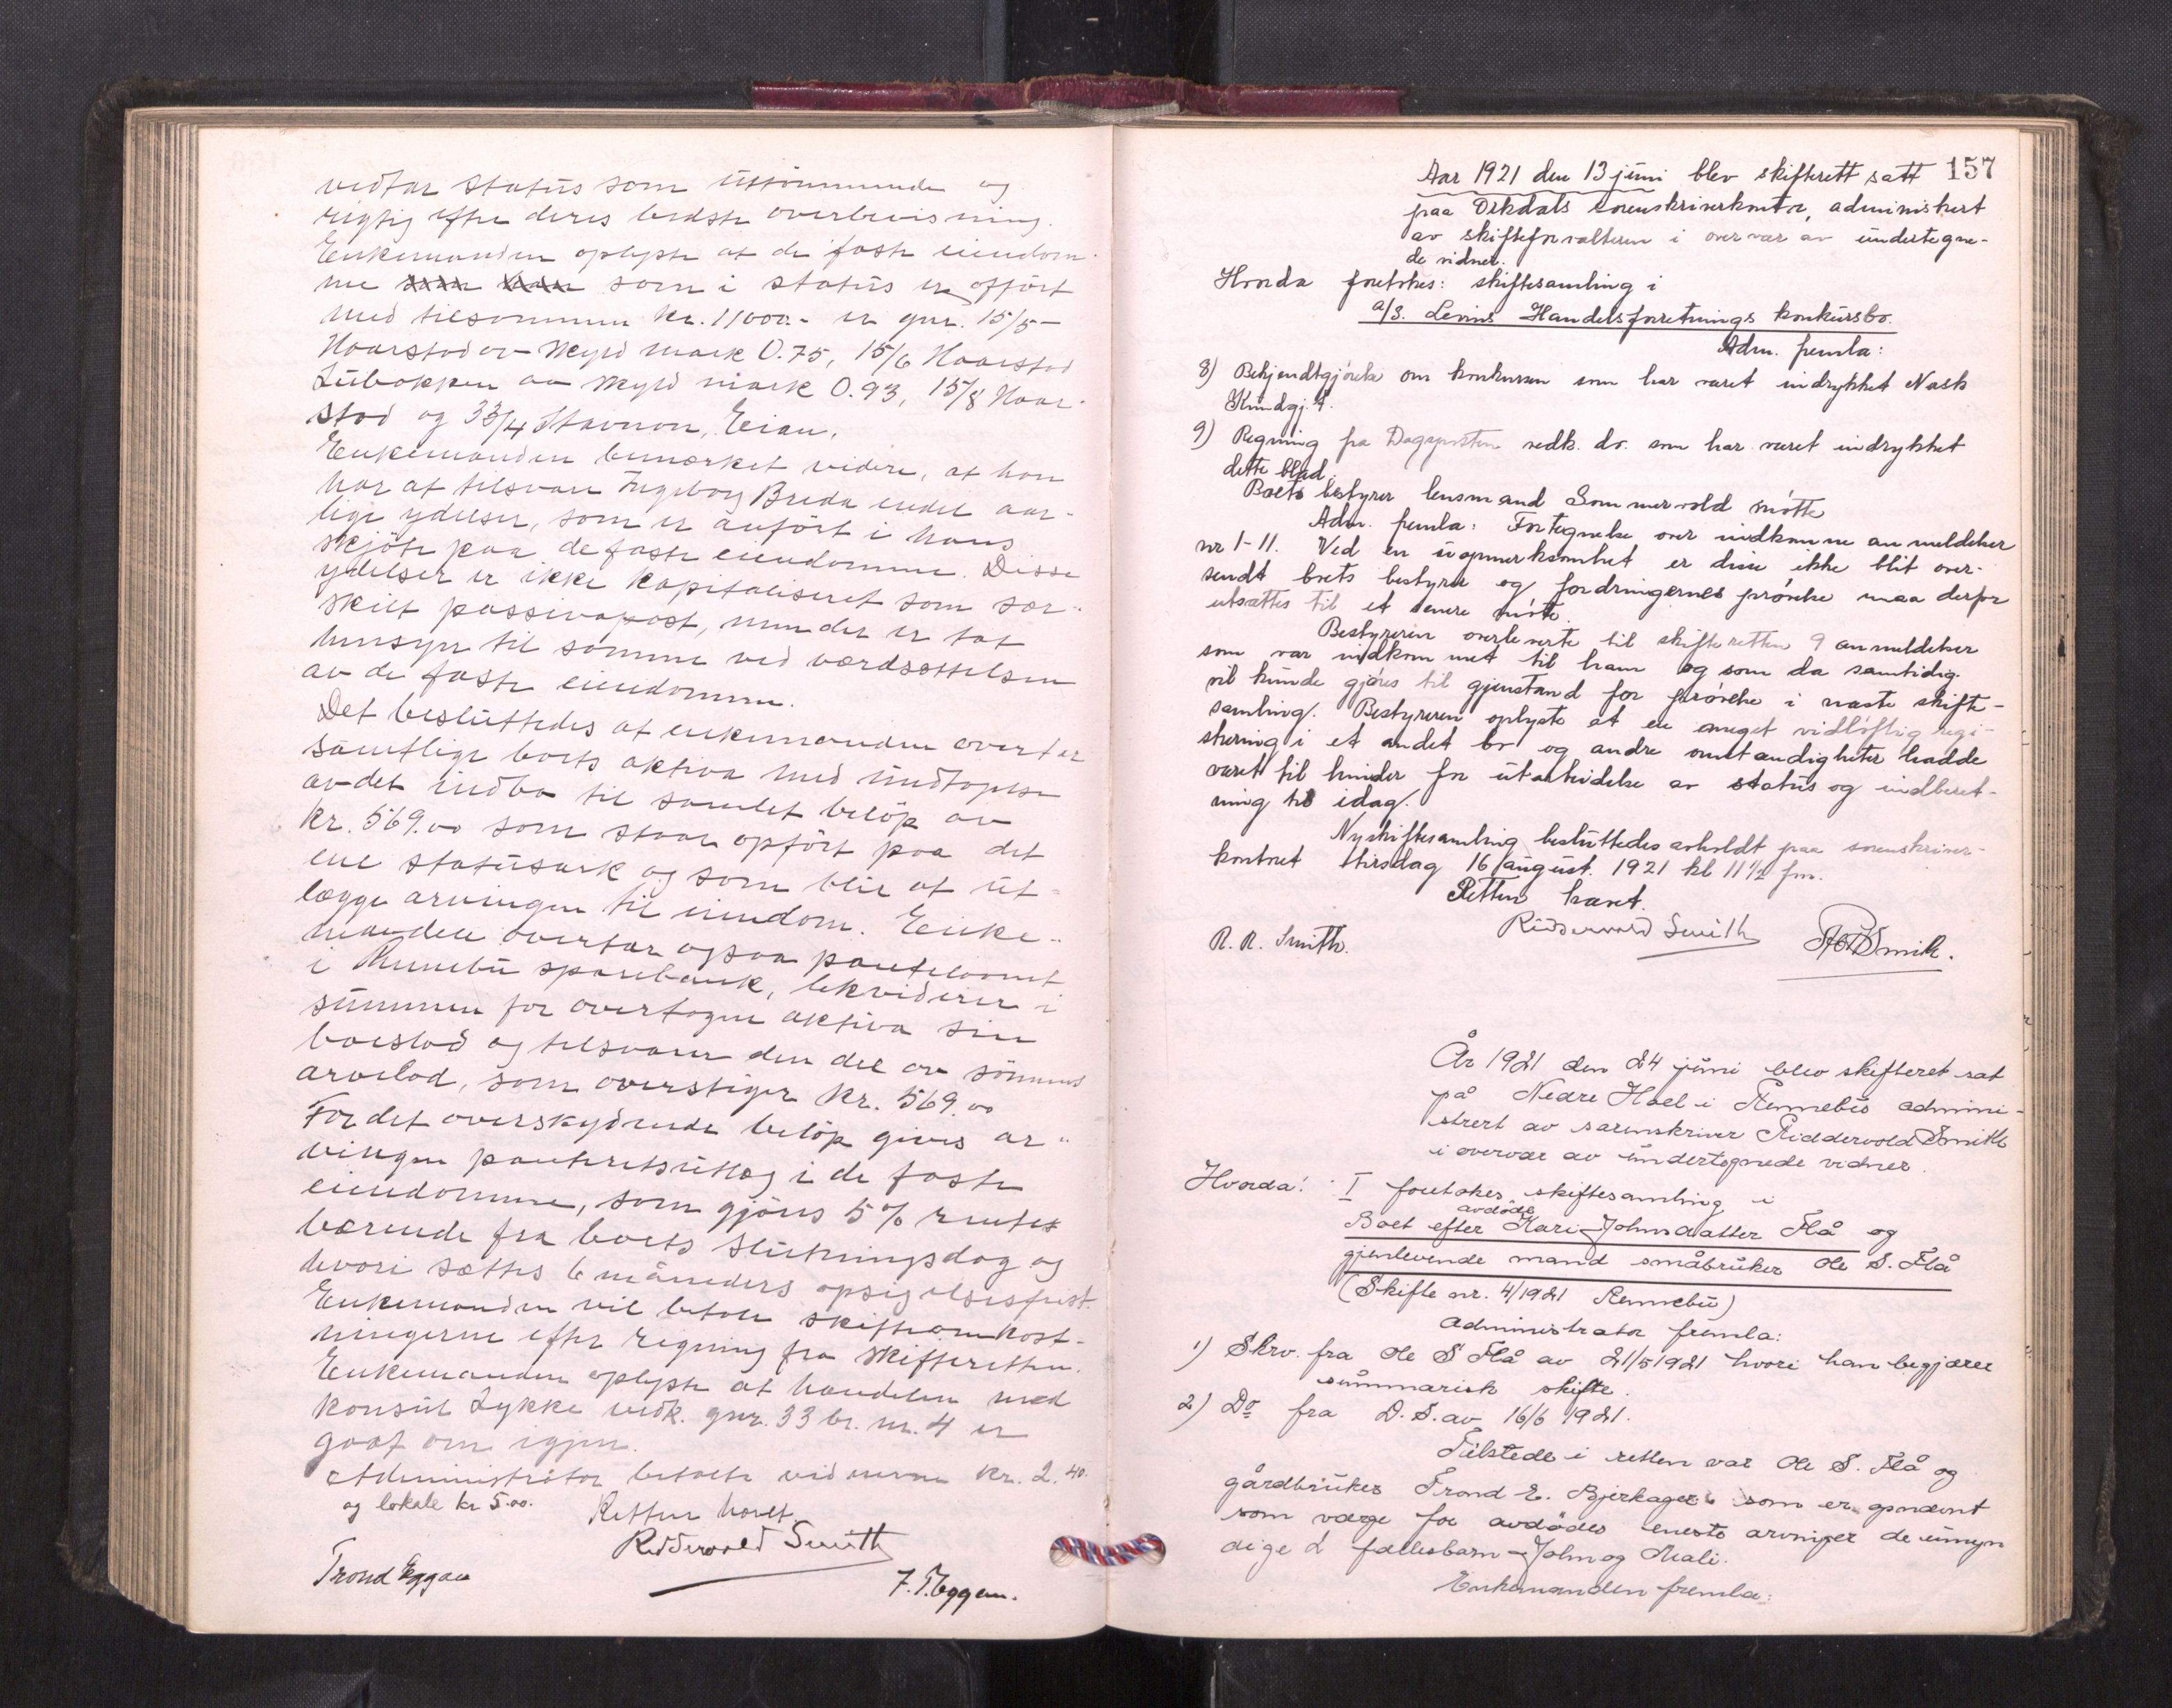 vedtar status som uttømmende og
rigtig efter deres bedste overbevisning.
Enkemanden oplyste at de faste eiendom-
me som i status er opført
med tilsammen kr. 11000.- er gnr. 15/5 -
Haarstad av skyld mark 0.75, 15/6 Haarstad
Lübakken av skyld mark 0.93, 15/8 Haar-
stad og 33/4 Stavnon, Eian.
Enkemanden bemerket videre, at han
har at tilsvare Ingeborg Breda endel aar-
lige ydelser, som er anført i hans
skjøte paa de faste eiendomme. Disse
ydelser er ikke kapitaliseret som sær-
skilt passivapost, men der er tat
hensyn til samme ved værdsættelsen
av de faste eiendomme.
Det besluttedes at enkemanden overtar
samtlige boets aktiva med undtagelse
av det indbo til samlet beløp av
kr. 569.00 som staar opført paa det
ene statusark og som blir at ut-
lægge arvingen til eiendom. Enke-
manden overtar ogsaa pantelaanet
i Rennebu sparebank, likviderer i
summen for overtagne aktiva sin
boeslod og tilsvarer den del av sønnens
arvelod, som overstiger kr. 569.00
For det overskydende beløp gives ar-
vingen panteretsutlæg i de faste
eiendomme, som gjøres 5% rente
bærende fra boets slutningsdag og
hvori sættes 6 måneders opsigelsesfrist.
Enkemanden vil betale skifteomkost-
ningerne efter regning fra skifteretten.
Enkemanden oplyste at handelen med
konsul Lykke vedk. gnr. 33 br. nr. 4 er
gaat om igjen.
Administrator betalte vidnerne kr. 2.40.
og lokale kr 5.00.
Retten hævet
Ridderwold Smith
Trond Eggan
J. T. Eggan.
157
Aar 1921 den 13 juni blev skifterett satt
paa Orkdals sorenskriverkontor, administrert
av skifteforvalteren i overvær av undertegne-
de vidner.
Hvorda foretokes: skiftesamling i
A/S. Levins Handelsforretnings konkursbo.
Adm. fremla:
8) Bekjendtgjørelse om konkursen som har været indrykket Norsk
Kundgj. t.
9) Regning fra Dagsposten vedk. do. som har været indrykket
dette blad.
Boets bestyrer lensmand Sommervold møtte
Adm. fremla: Fortegnelse over indkomne anmeldelser
nr 1-11. Ved en uopmerksomhet er disse ikke blit over-
sendt boets bestyrer og fordringernes prøvelse maa derfor
utsættes til et senere møte.
Bestyreren overleverte til skifteretten 9 anmeldelser
som var indkommet til ham og som da samtidig
vil kunde gjøres til gjenstand for prøvelse i næste skifte-
samling. Bestyreren oplyste at en meget vidløftig regi-
strering i et andet bo og andre omstændigheter hadde
været til hinder for utarbeidelse av status og indberet-
ning til idag.
Ny skiftesamling besluttedes avholdt paa sorenskriver-
kontoret tirsdag 16 august. 1921 kl 11½ fm.
Retten hævet.
Ridderwold Smith
R. R. Smith.
År 1921 den 24 juni blev skifteret sat
på Nedre Hoel i Rennebu admini-
strert av sorenskriver Riddervold Smith
i overvær av undertegnede vidner.
Hvorda: I foretokes skiftesamling i
Boet efter avdøde Kari Johnsdatter Flå og
gjenlevende mand småbruker Ole S. Flå
(Skifte nr. 4/1921 Rennebu)
Administrator fremla:
1) Skrv. fra Ole S Flå av 21/5 1921 hvori han begjærer
summarisk skifte.
2) Do fra D. S. av 16/6 1921.
Tilstede i retten var Ole S. Flå og
gårdbruker Trond E. Bjerkager som er opnævnt
som værge for avdødes eneste arvinger de umyn
dige 2 fællesbarn - John og Mali.
Enkemanden fremla: